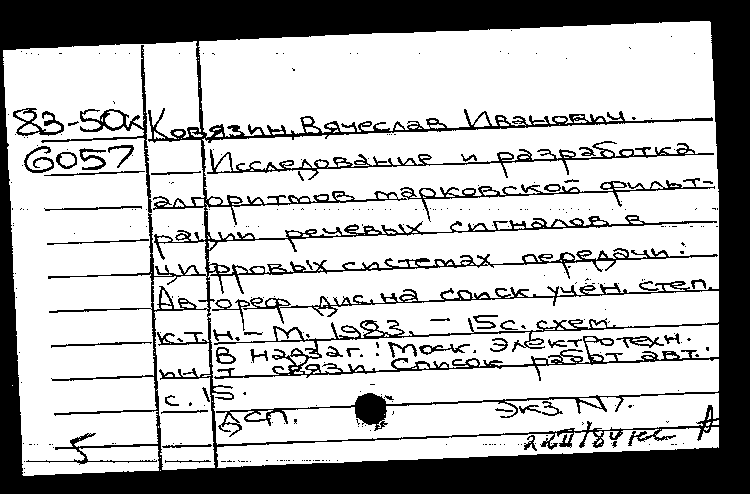 83-50к Ковязин, Вячеслав Иванович.
6057 Исследование и разработка
алгоритмов марковской фильт-
рации речевых сигналов в
цифровых системах передачи:
Автореф. дис. на соиск. учён. степ.
к.т.н. - М., 1983. - 15 с. схем.
В надзаг.: Моск. электротехн.
ин-т связи. Список работ авт.:
с. 15.
ДСП. Экз. N 7.
5